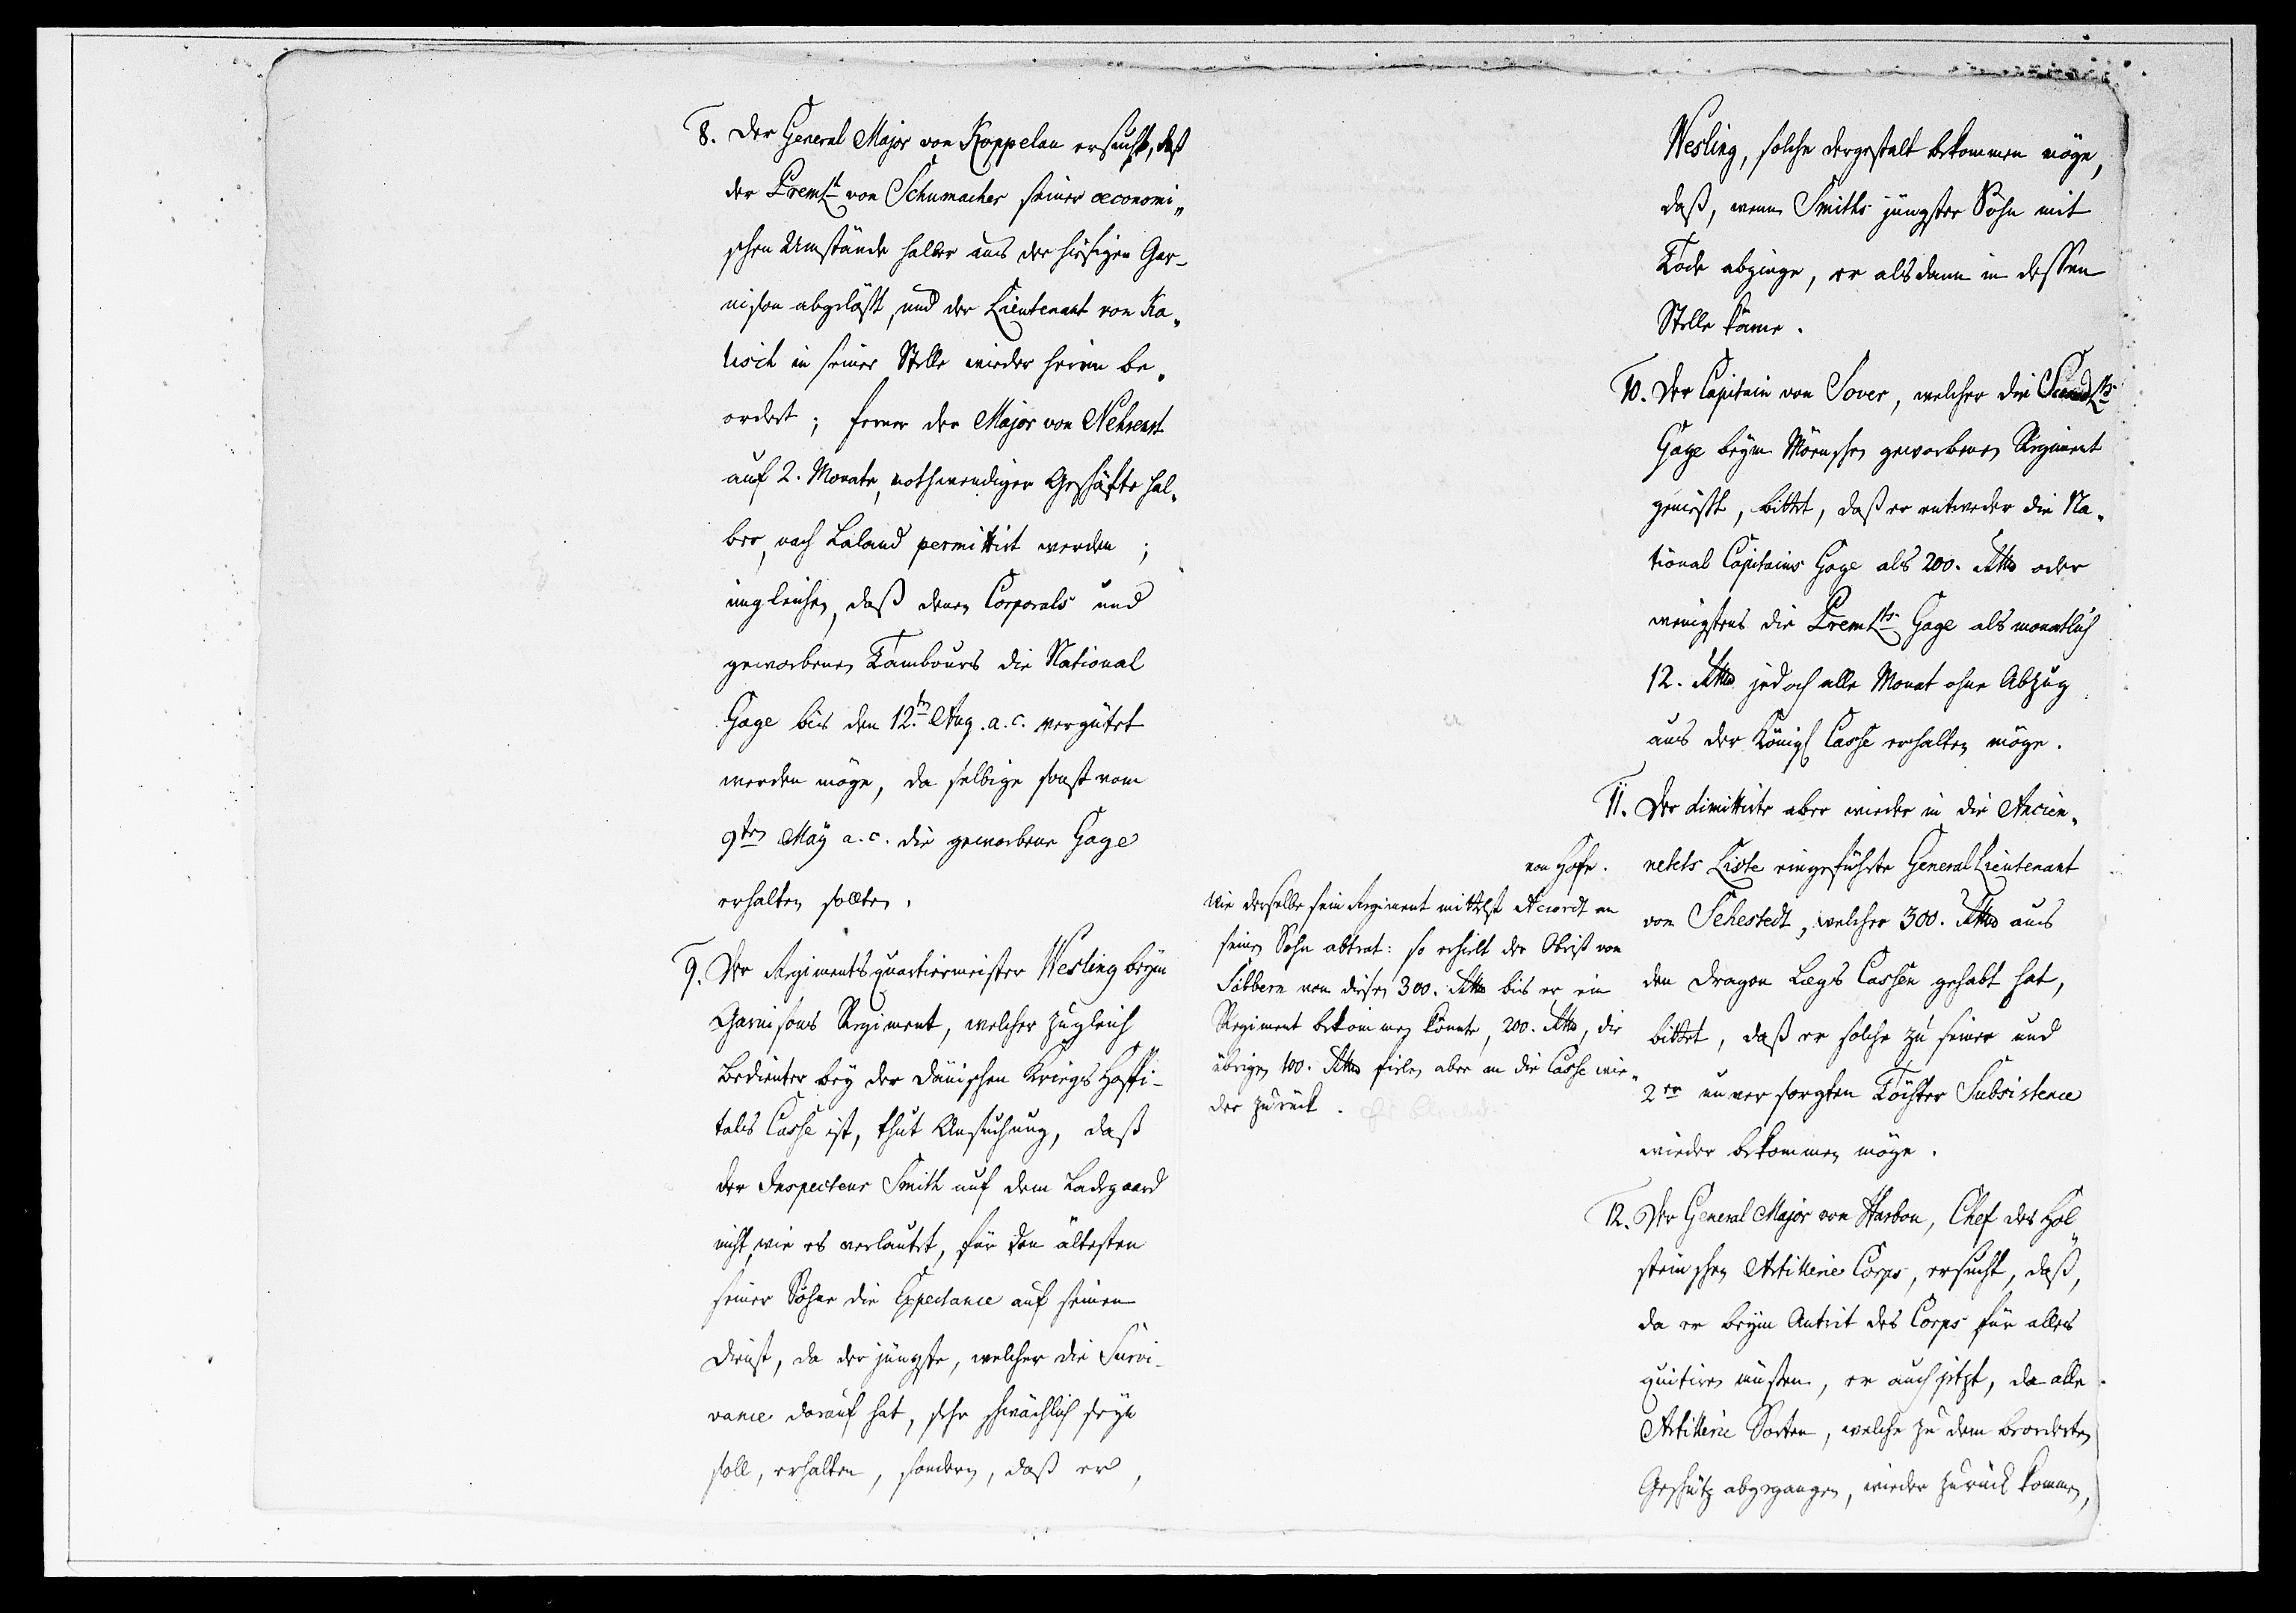 8. Der General Major von Koppelau ersucht, daß
der PremLt von Schumacher seiner oeconomi„
schen Umstände halber aus der hiesigen Gar-
nison abgelöst, und der Lieutenant von Ka„
lisch in seiner Stelle wieder herein be„
ordert; ferner der Major von Nehrenst
auf 2. Monate, nothwendiger Geschäfte hal„
ber, nach Laland permittirt werden;
ungleichen, daß denen Corporals und
geworbenen Tambours die National
Gage bis den 12.ten Aug. a. c. vergütet
werden möge, da selbige sonst vom
9ten May a. c. die geworbene Gage
erhalten sollten.
9. Der Regimentsquartiermeister Wesling beym
Garnisons Regiment, welcher zugleich
Bedienter bey der dänischen Kriegs Hospi-
tals Casse ist, thut Ansuchung, daß
der Inspecteur Smith auf dem Ladegaard
nicht, wie es verlautet, für den ältesten
seiner Söhne die Expectance auf seinen
Dienst, da der jüngste, welcher die Survi-
vance darauf hat, sehr schwächlich seyn
soll, erhalten, sondern, daß er,
von Hofe.
Wie derselbe sein Regiment mittelst Accordt an
seinen Sohn abtrat: so erhielt der Obrist von
Sibbern von diesen 300. Rthlr bis er ein
Regiment bekommen könnte, 200. Rthlr, die
übrigen 100. Rthlr fielen aber an die Casse wie„
der zurück.
Wesling, solche dergestalt bekommen möge,
daß, wenn Smiths jüngster Sohn mit
Tode abginge, er alsdann in dessen
Stelle käme.
10. Der Capitain von Sover, welcher die SecondLts
Gage beym Mörnschen geworbenen Regiment
genießt, bittet, daß er entweder die Na„
tional Capitains Gage als 200. Rthlr oder
wenigstens die PremLts Gage als monatlich
12. Rthlr jedoch alle Monat ohne Abzug
aus der Königl Casse erhalten möge.
11. Der dimittirte aber wieder in die Ancien„
netets Liste eingeführte General Lieutenant
von Sehestedt, welcher 300. Rthlr aus
den Dragon Lægs Cassen gehabt hat,
bittet, daß er solche zu seiner und
2er unversorgten Töchter Subsistence
wieder bekommen möge.
12. Der General Major von Harbou, Chef des Hol„
steinschen Artillerie Corps, ersucht, daß,
da er beym Antrit des Corps für alles
quitiren müsten, er auch jetzt, da alle
Artillerie Sorten, welche zu dem beorderten
Geschütz abgegangen, wieder zurück kommen,